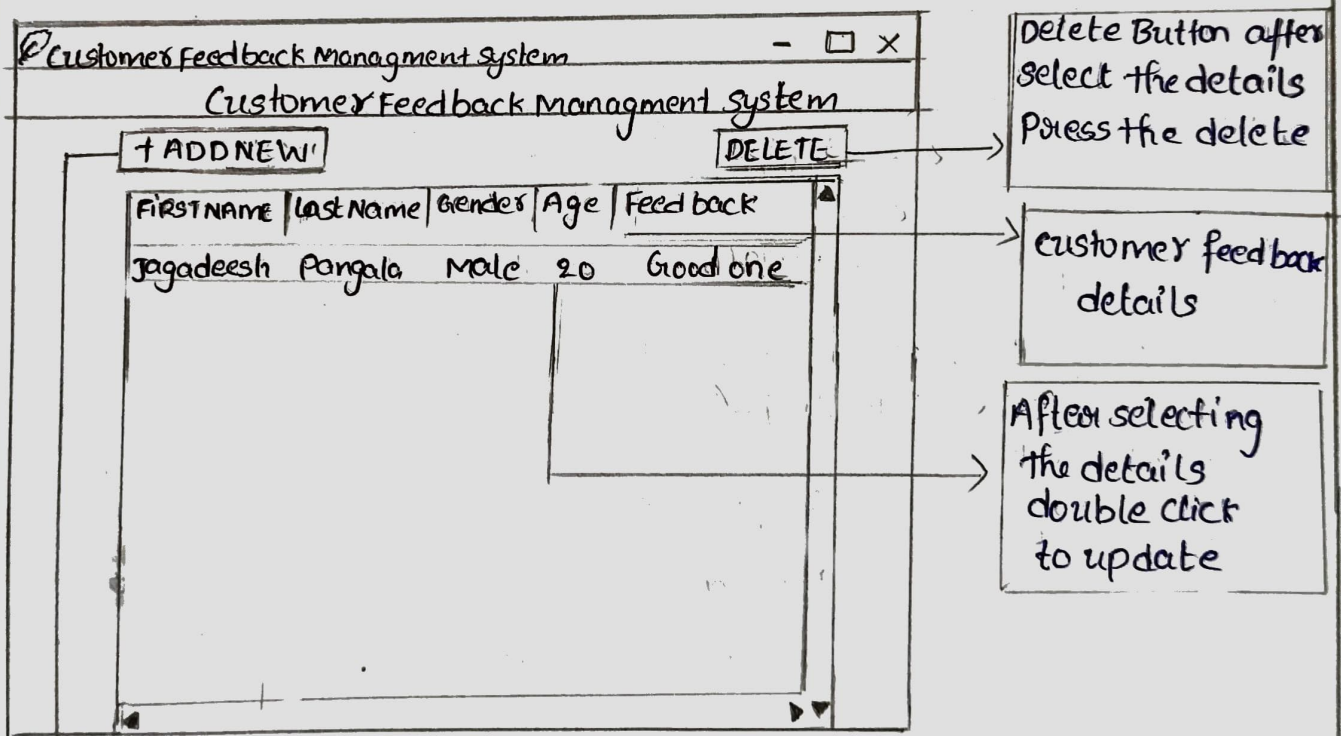 Customer Feedback Managment System
Customer Feedback Managment System
+ ADD NEW
DELETE
FIRST NAME Last Name Gender Age Feed back
Jagadeesh Pangala Male 20 Good one
Delete Button after
select the details
Press the delete
customer feed back
details
After selecting
the details
double click
to update